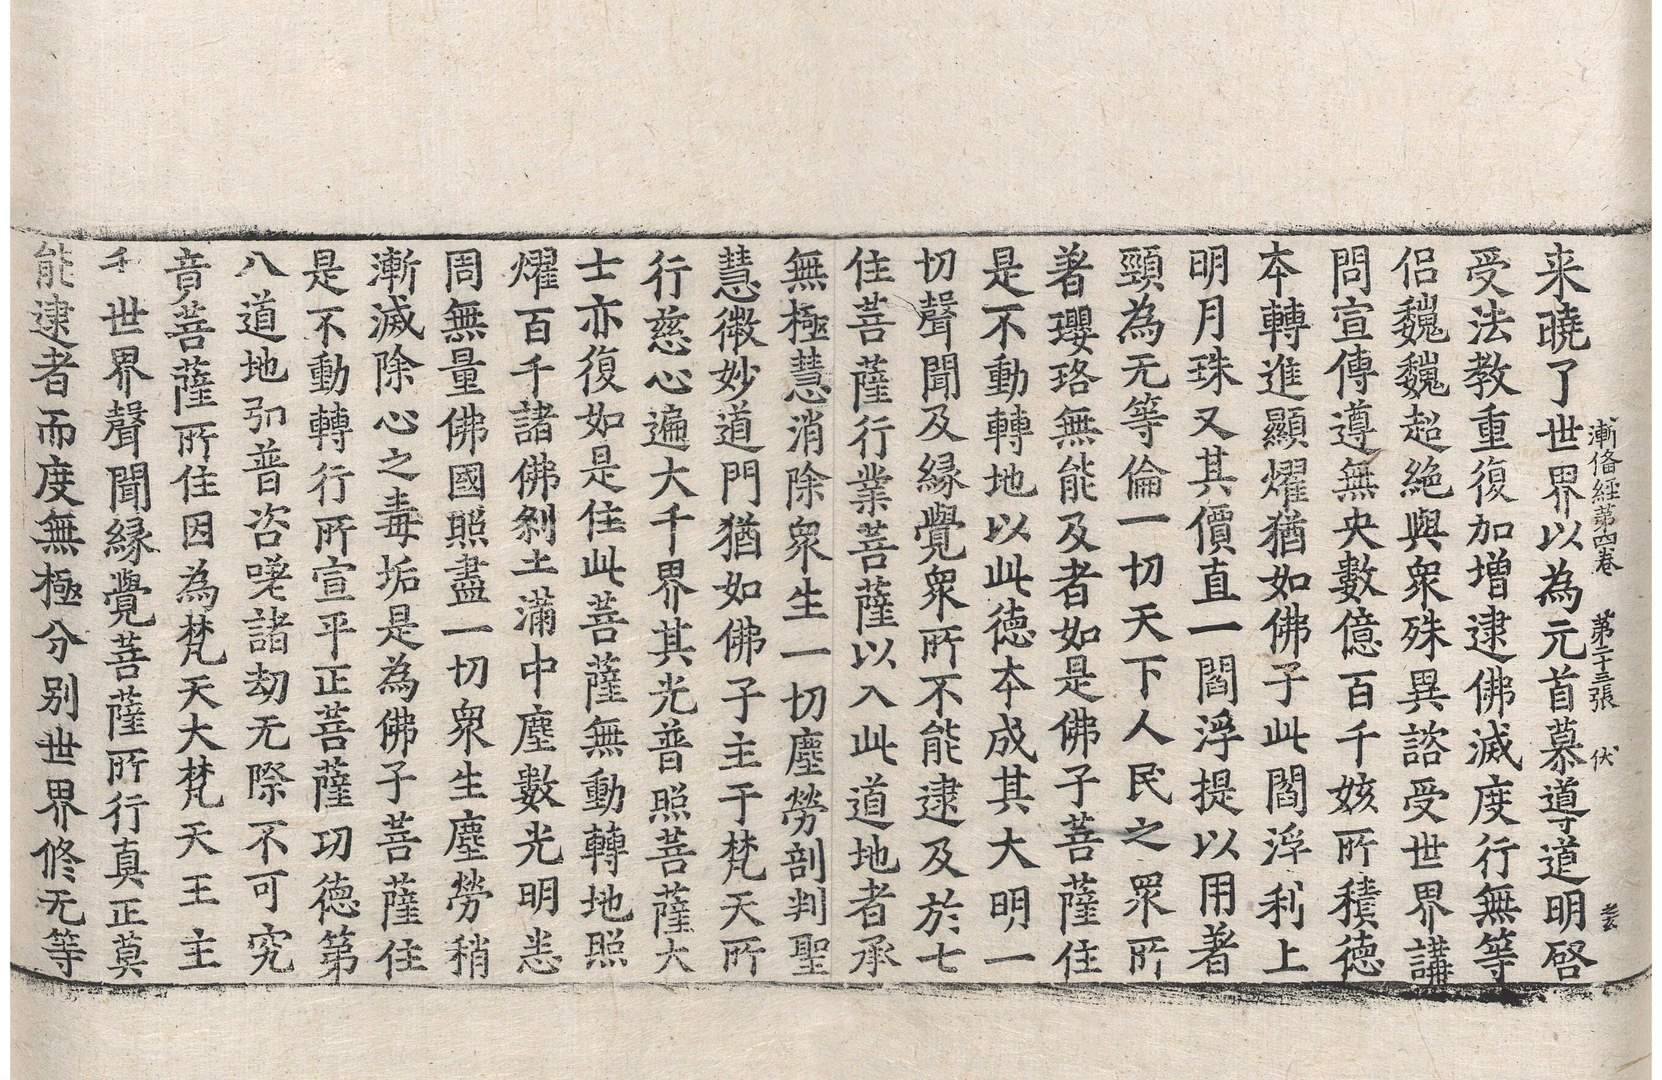 漸俻經第四卷　第二十三張　伏
来曉了世界以為元首慕導道明啓
受法教重復加增逮佛滅度行無等
侶魏魏超絶與衆殊異諮受世界講
問宣傳遵無央數億百千姟所積德
本轉進顯燿猶如佛子此閻浮利上
明月珠又其價直一閻浮提以用著
頸為无等倫一切天下人民之眾所
著瓔珞無能及者如是佛子菩薩住
是不動轉地以此德本成其大明一
切聲聞及縁覺衆所不能逮及於七
住菩薩行業菩薩以入此道地者承
無極慧消除衆生一切塵勞剖判聖
慧微妙道門猶如佛子主于梵天所
行慈心遍大千界其光普照菩薩大
士亦復如是住此菩薩無動轉地照
燿百千諸佛剎土滿中塵數光明悉
周無量佛國照盡一切衆生塵勞稍
漸滅除心之毒垢是為佛子菩薩住
是不動轉行所宣平正菩薩功德第
八道地別普咨嗟諸劫无際不可究
音菩薩所住因為梵天大梵天王主
千世界聲聞縁覺菩薩所行真正莫
能逮者而度無極分别世界修无等